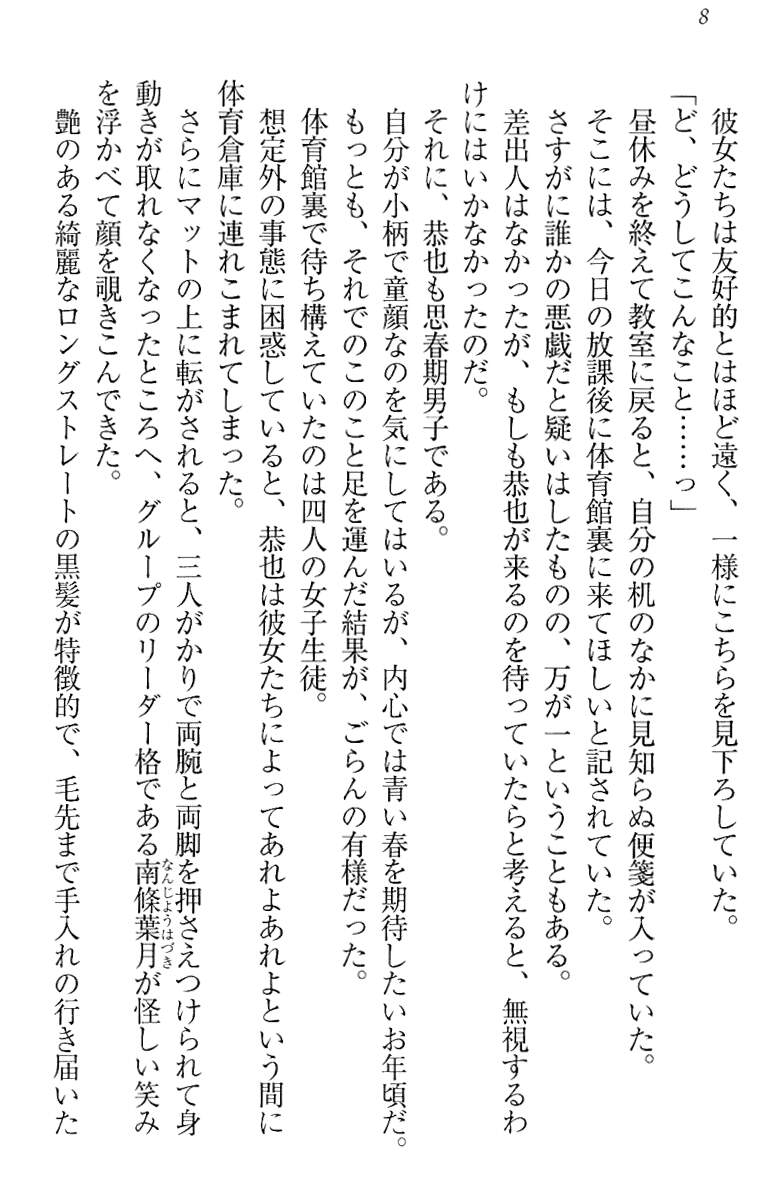 8
彼女たちは友好的とはほど遠く、一様にこちらを見下ろしていた。
「ど、どうしてこんなこと……っ」
昼休みを終えて教室に戻ると、自分の机のなかに見知らぬ便箋が入っていた。
そこには、今日の放課後に体育館裏に来てほしいと記されていた。
さすがに誰かの悪戯だと疑いはしたものの、万が一ということもある。
差出人はなかったが、もしも恭也が来るのを待っていたらと考えると、無視するわ
けにはいかなかったのだ。
それに、恭也も思春期男子である。
自分が小柄で童顔なのを気にしてはいるが、内心では青い春を期待したいお年頃だ。
もっとも、それでのこのこと足を運んだ結果が、ごらんの有様だった。
体育館裏で待ち構えていたのは四人の女子生徒。
想定外の事態に困惑していると、恭也は彼女たちによってあれよあれよという間に
体育倉庫に連れこまれてしまった。
さらにマットの上に転がされると、三人がかりで両腕と両脚を押さえつけられて身
動きが取れなくなったところへ、グループのリーダー格である南條葉月が怪しい笑み
なんじょうはづき
を浮かべて顔を覗きこんできた。
艶のある綺麗なロングストレートの黒髪が特徴的で、毛先まで手入れの行き届いた